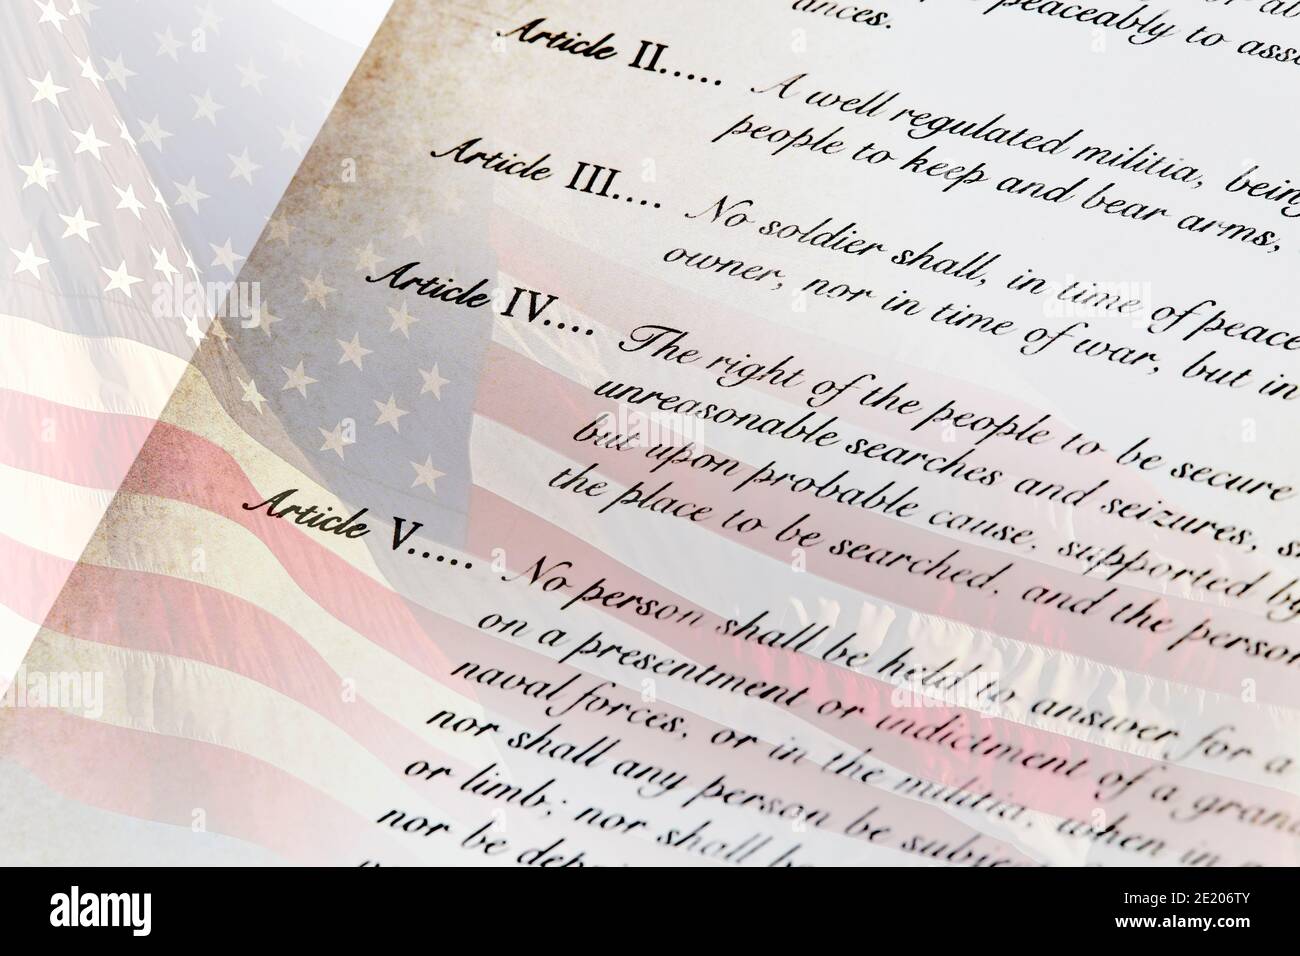 peaceably to
ances.
Article II..... A well regulated militia, being
people to keep and bear arms,
Article III.... No soldier shall, in time of peace
owner, nor in time of war, but in
Article IV.... The right of the people to be secure
unreasonable searches and seizures,
but upon probable cause, supported by
the place to be searched, and the person
Article V..... No person shall be held to answer for a
on a presentment or indictment of a
naval forces, or in the militia, when in
nor shall any person be
or limb; nor shall
nor be
a alamy
alamy
Image ID: 2E206TY
www.alamy.com